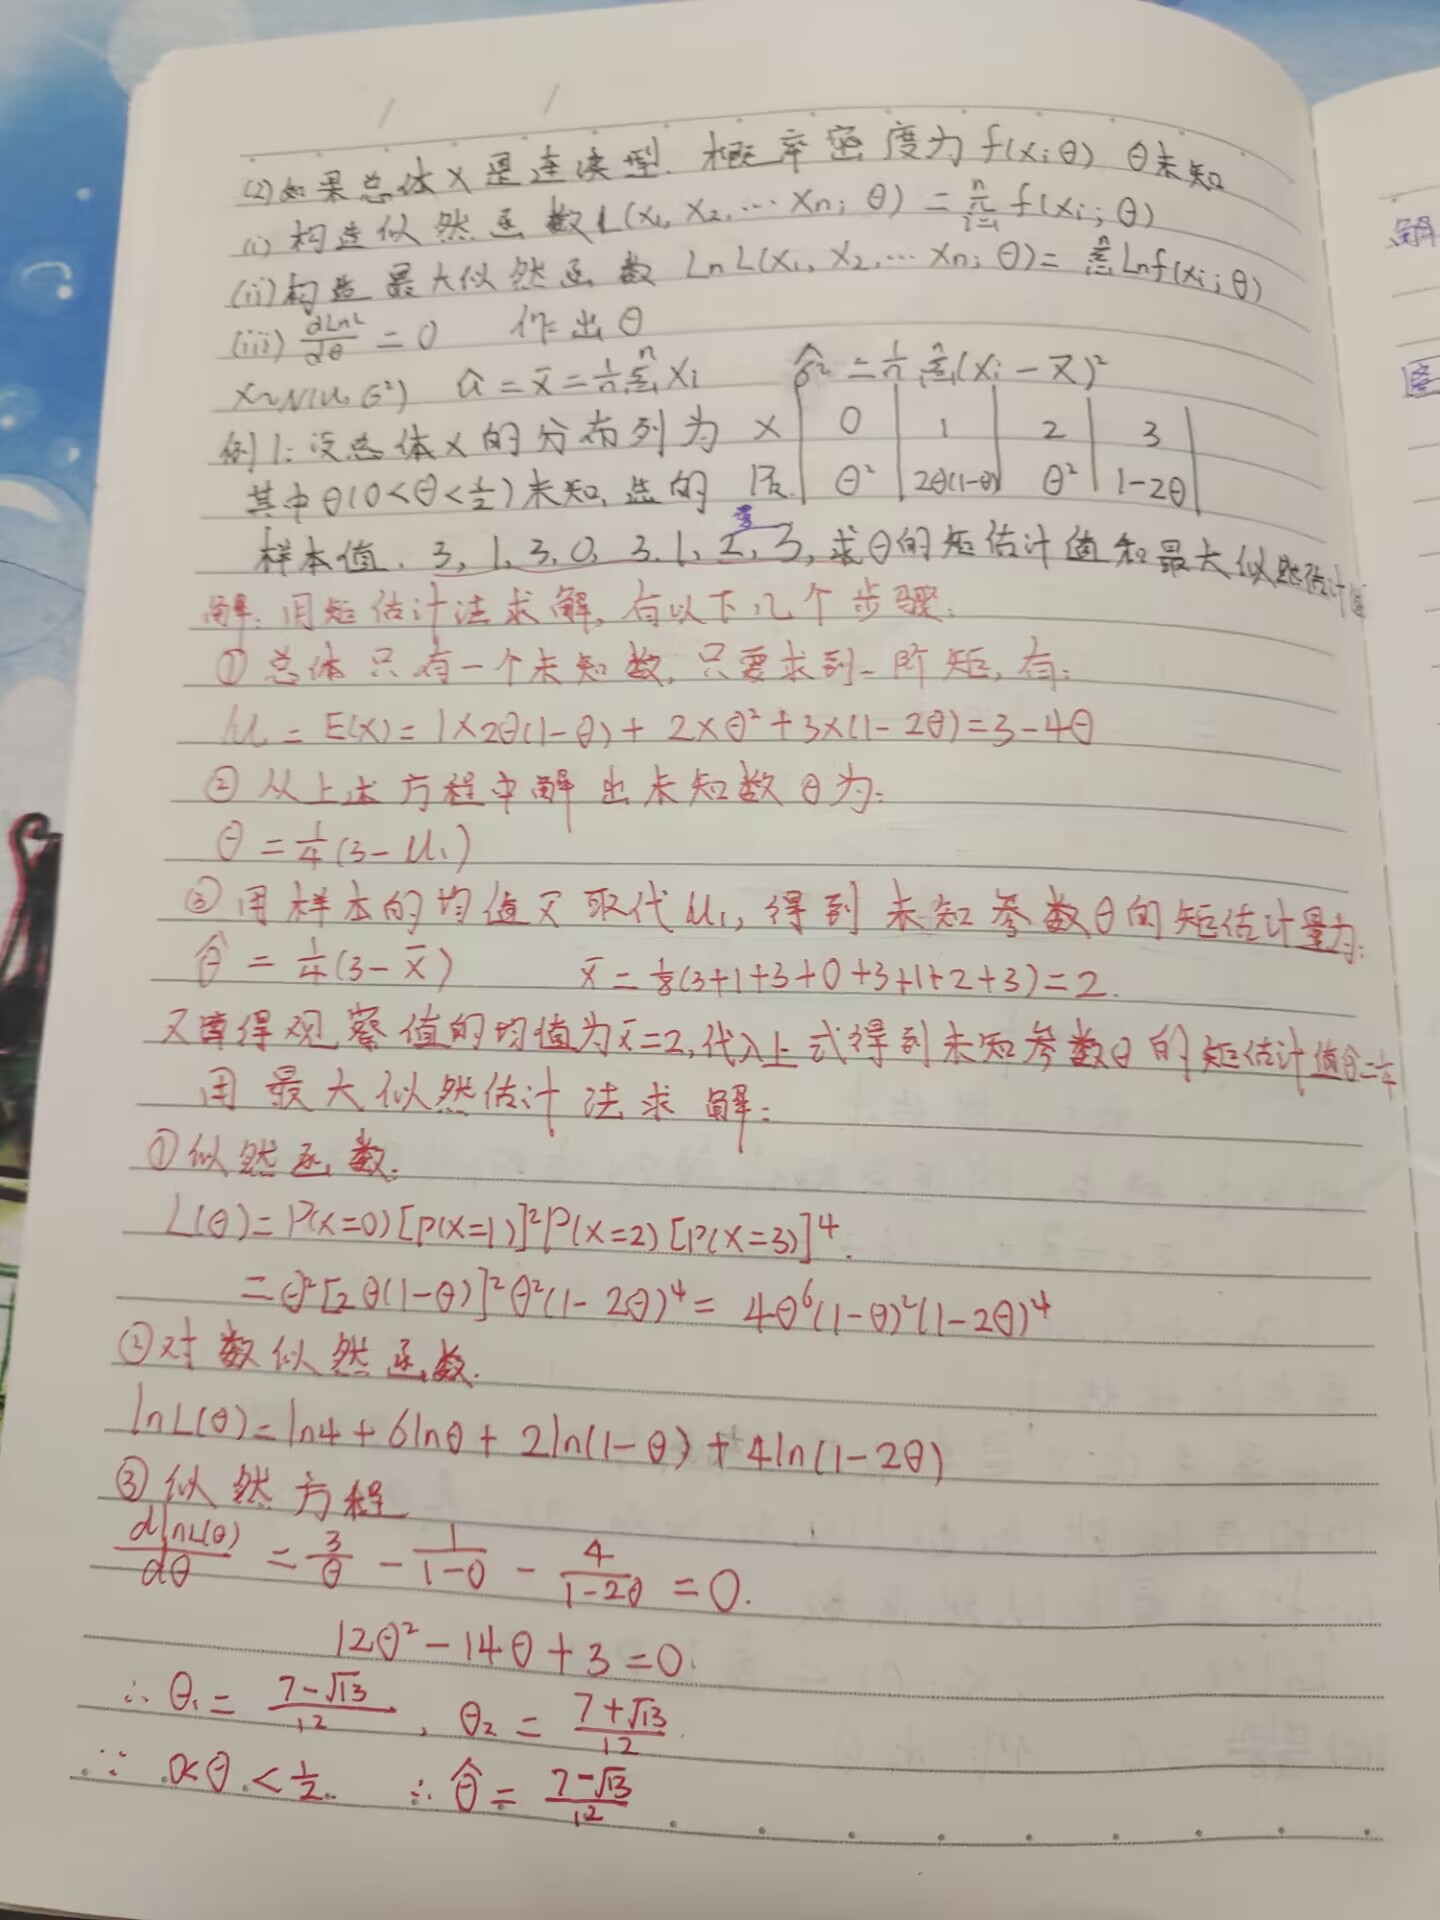 (2)如果总体X是连续型.概率密度为f(x;θ) θ未知
(i)构造似然函数L(x₁,x₂,…xn;θ)=∏ⁿᵢ₌₁f(xi;θ)
(ii)构造最大似然函数LnL(x₁,x₂,…xn;θ)=Σⁿᵢ₌₁Lnf(xi;θ)
(iii) dLnL/dθ=0 作出θ
X~N(μ,σ²) û=x̄=1/n Σⁿᵢ₌₁Xi σ̂²=1/n Σⁿᵢ₌₁(Xi-X̄)²
例1:设总体X的分布列为 X 0 1 2 3
其中θ(0<θ<1/2)未知, 总的 Pk θ² 2θ(1-θ) θ² 1-2θ
样本值.3,1,3,0,3,1,2,3,求θ的矩估计值和最大似然估计值
解:用矩估计法求解,有以下几个步骤:
①总体只有一个未知数,只要求到一阶矩,有:
μ₁=E(X)=1×2θ(1-θ)+2×θ²+3×(1-2θ)=3-4θ
②从上述方程中解出未知数θ为:
θ=1/4(3-μ₁)
③用样本的均值X̄取代μ₁,得到未知参数θ的矩估计量为:
θ̂=1/4(3-X̄) x̄=1/8(3+1+3+0+3+1+2+3)=2.
又算得观察值的均值为x̄=2,代入上式得到未知参数θ的矩估计值θ̂=1/4
用最大似然估计法求解:
①似然函数.
L(θ)=P(X=0)[P(X=1)]²P(X=2)[P(X=3)]⁴.
=θ²[2θ(1-θ)]²θ²(1-2θ)⁴=4θ⁶(1-θ)²(1-2θ)⁴
②对数似然函数.
lnL(θ)=ln4+6lnθ+2ln(1-θ)+4ln(1-2θ)
③似然方程
dlnL(θ)/dθ=3/θ-1/(1-θ)-4/(1-2θ)=0.
12θ²-14θ+3=0.
∴θ₁=(7-√13)/12,θ₂=(7+√13)/12.
∵0<θ<1/2. ∴θ̂=(7-√13)/12
解